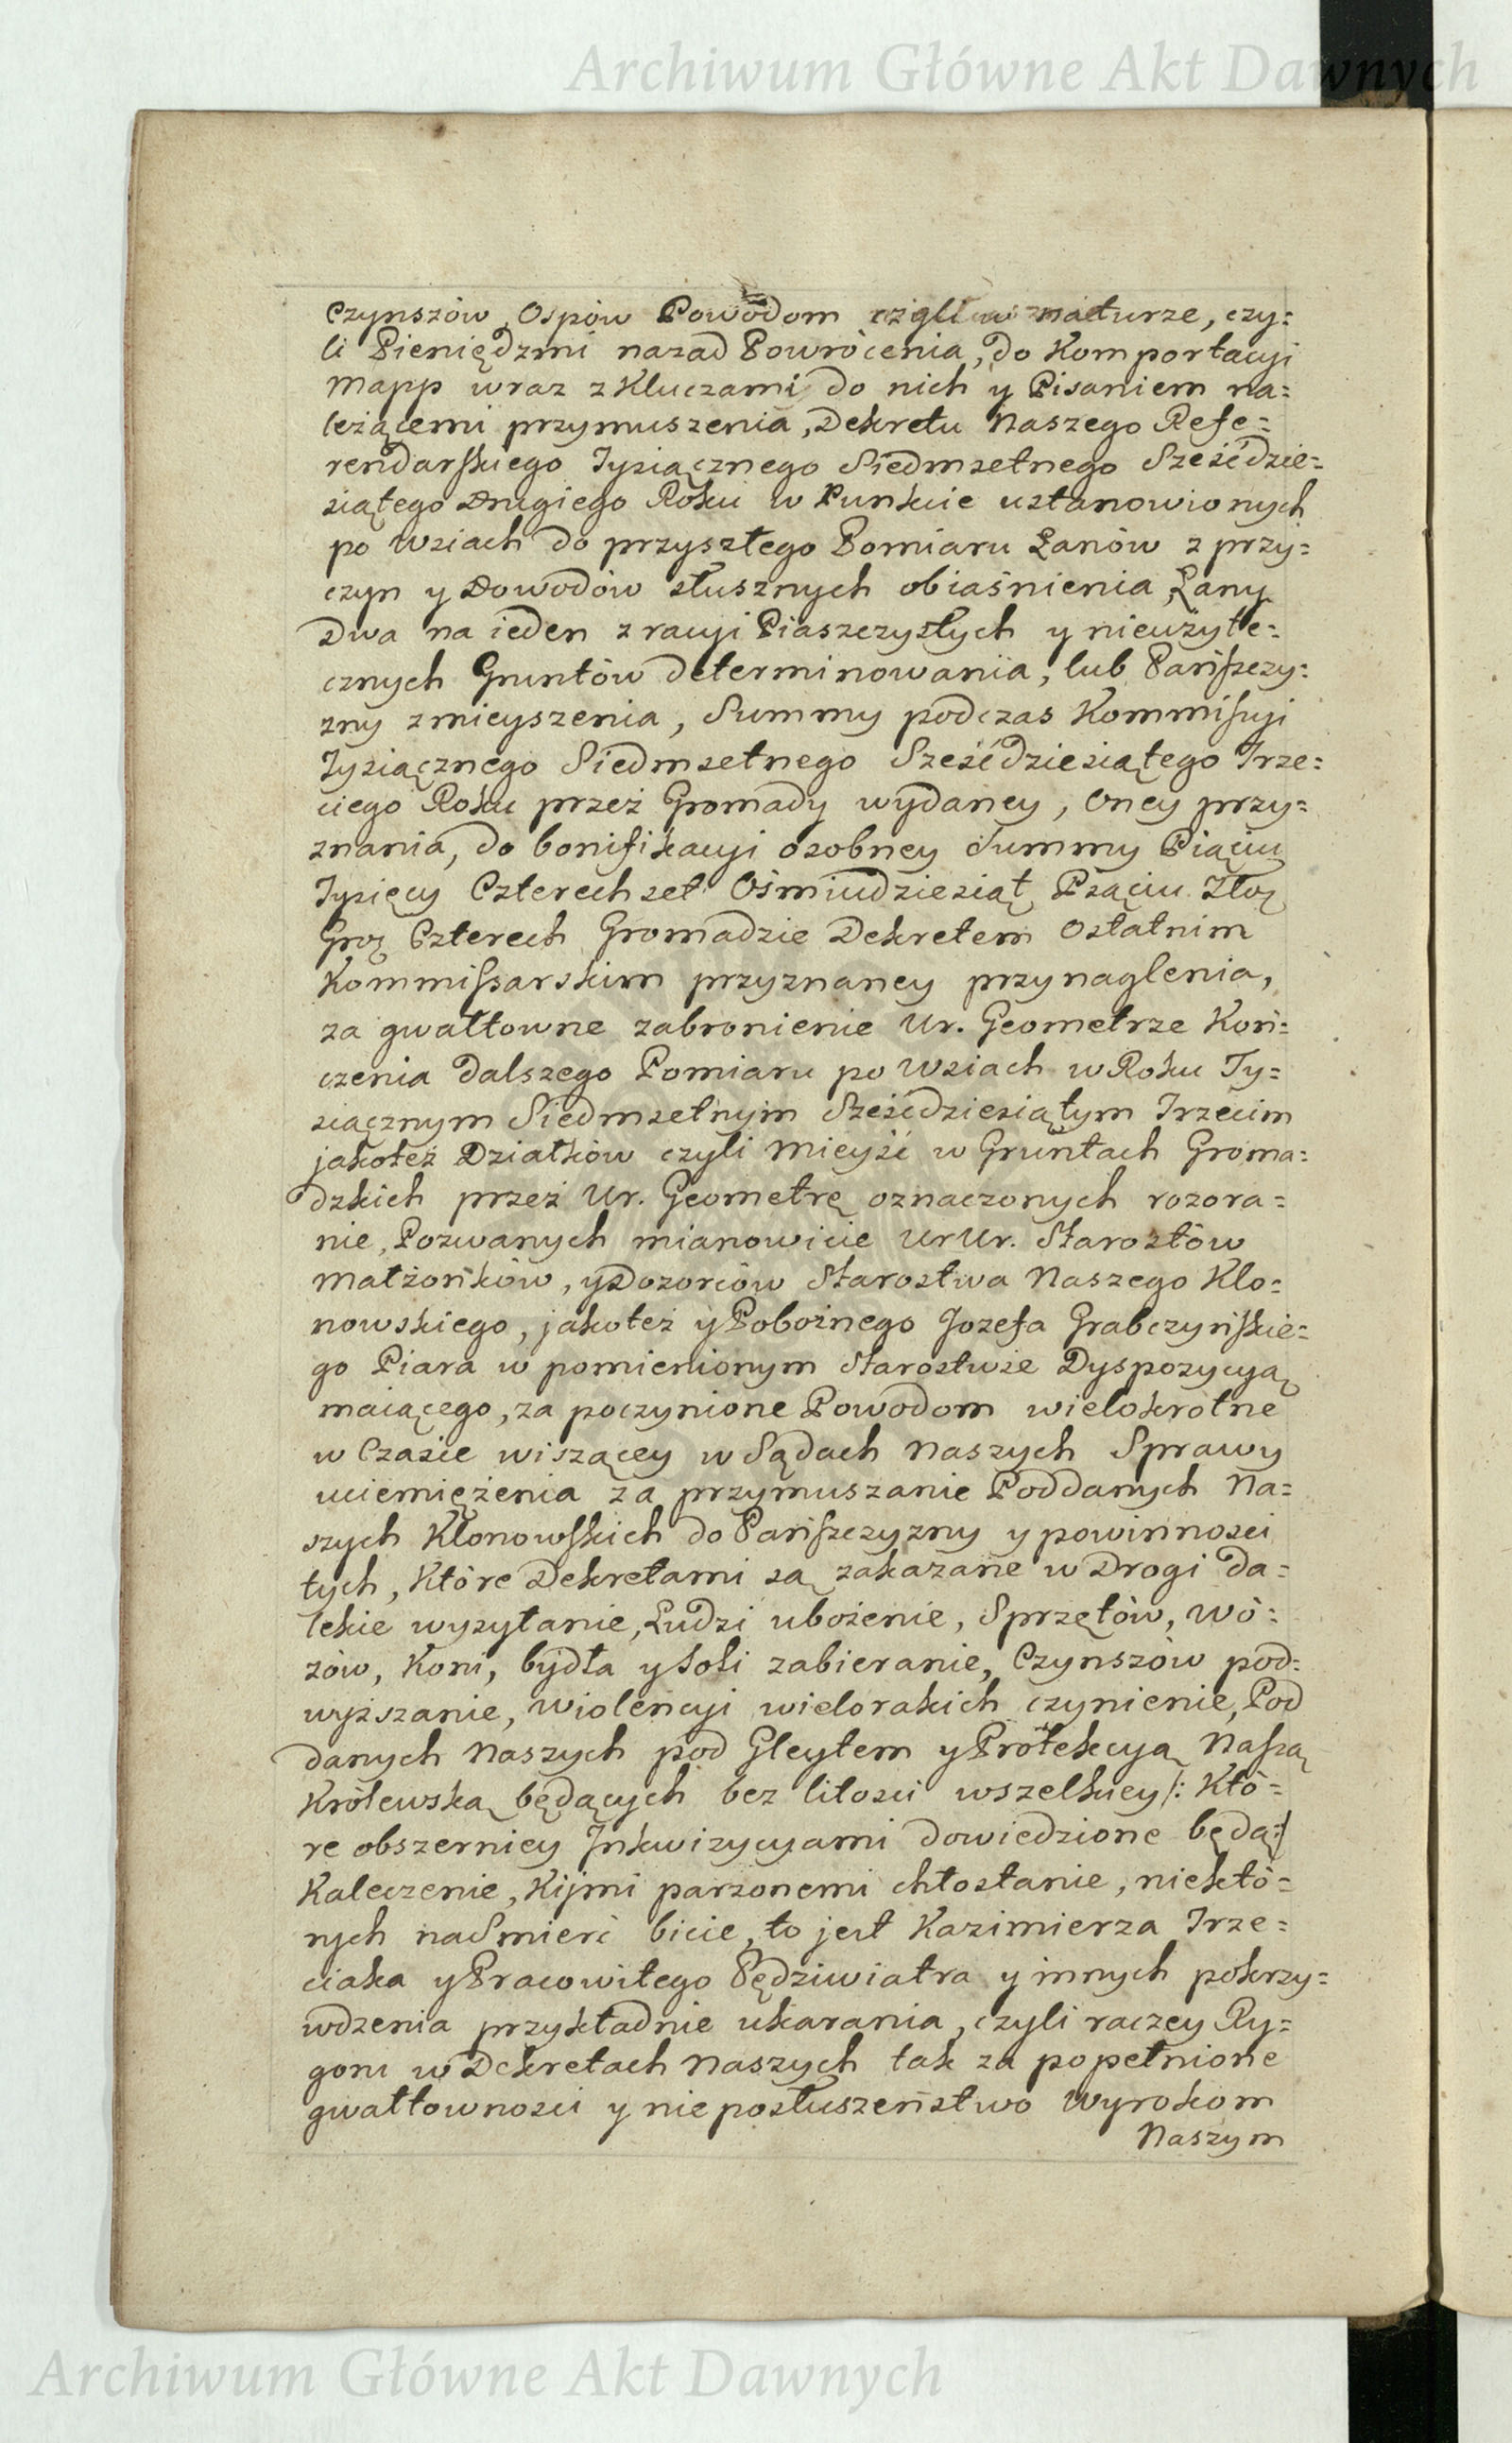 Archiwum Główne Akt Dawnych
Czynszów, Ospów Powodom czyli w naturze, czy=
li Pieniędzmi nazad Powrócenia, do Komportacyi
Mapp wraz z Kluczami do nich y Pisaniem na=
leżącemi przymuszenia, Dekretu Naszego Refe=
rendarskiego Tysiącznego Siedmsetnego Sześćdzie=
siątego Drugiego Roku w Punkcie ustanowionych
po Wsiach do przyszłego Pomiaru Łanów z przy=
czyn y Dowodów słusznych obiaśnienia, Łany
Dwa na ieden z racyi Piaszczystych y nieużyte=
cznych Gruntów determinowania, lub Pańszczy=
zny zmieyszenia, Summy podczas Kommissyi
Tysiącznego Siedmsetnego Sześćdziesiątego Trze=
ciego Roku przez Gromady wydaney, Oney przy=
znania, do bonifikacyi osobney Summy Piąciu
Tysięcy Czterechset Ośmiudziesiąt Piąciu Złoz
Groz Czterech Gromadzie Dekretem Ostatnim
Kommissarskim przyznaney przynaglenia,
za gwałtowne zabronienie Ur. Geometrze Koń=
czenia dalszego Pomiaru po Wsiach w Roku Ty=
siącznym Siedmsetnym Sześćdziesiątym Trzecim
jakoteż Działków czyli Mieyść w Gruntach Groma=
dzkich przez Ur. Geometrę oznaczonych rozora=
nie, Pozwanych mianowicie UrUr. Starostów
Małżonków, y Dozorców Starostwa Naszego Klo=
nowskiego, jakoteż y Pobożnego Jozefa Grabczyńskie=
go Piara w pomienionym Starostwie Dyspozycyą
maiącego, za poczynione Powodom wielokrotne
w Czasie wiszącey w Sądach Naszych Sprawy
uciemiężenia za przymuszanie Poddanych Na=
szych Klonowskich do Pańszczyzny y powinności
tych, Które Dekretami są zakazane w Drogi da=
lekie wysyłanie, Ludzi ubożenie, Sprzętów, Wo=
zów, Koni, bydła y Soli zabieranie, Czynszów pod=
wyższanie, Wiolencyi wielorakich czynienie, Pod
danych Naszych pod Gleytem y Protekcyą Naszą
Królewską będących bez litości wszelkiey /: Któ=
re obszerniey Inkwizycyami dowiedzione będą :/
Kaleczenie, Kijmi parzonemi chłostanie, niektó=
rych na Smierć bicie, to jest Kazimierza Trze=
ciaka y Pracowitego Pędziwiatra y innych pokrzy=
wdzenia przykładnie ukarania, czyli raczey Ry=
goru w Dekretach Naszych tak za popełnione
gwałtowności y nieposłuszeństwo Wyrokom
Naszym
Archiwum Główne Akt Dawnych